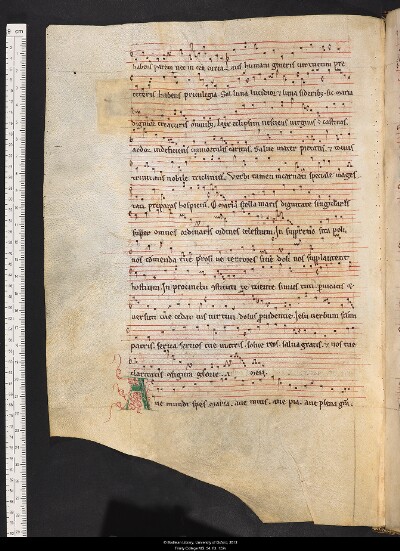 habens parem nec in cea curia. laus humani generis uirtutum pre
ceteris habens priuilegia. Sol luna lucidior. & luna sideribz. sic maria
dignior creaturis omnibz. Lux eclipsim nesciens uirginis e castitas.
ardor indeficiens immortalis caritas. Salue mater pietatis. & tocius
trinitatis nobile triclinium. Verbi tamen incarnati speciale maies
tati preparans hospitiu. O maria stella maris dignitate singularis
super omnes ordinaris ordines celestium. In supremo sita poli.
nos comenda tue proli ne terrores siue doli nos supplantent
hostium. In procinctu te tuente simus tuti. &
uersuti uis cedat tue uirtuti. dolus prudentie. Iesu uerbum
patris. serua seruos tue matris. solue reos. salua gratis. & nos tue
claritatis glorie. A men.
Aue mundi spes maria. aue mitis. aue pia. aue plena gra.